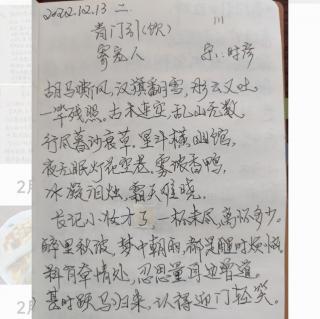 2022.12.13 二
青门引(饮)
寄宠人 宋·时彦
胡马嘶风,汉旗翻雪,彤云又吐,
一竿残照。古木连空,乱山无数,
行尽暮沙衰草。星斗横幽馆,
夜无眠灯花空老。雾浓香鸭,
冰凝泪烛,霜天难晓。
长记小妆才了,一杯未尽,离怀多少。
醉里秋波,梦中朝雨,都是醒时烦恼。
料有牵情处,忍思量耳边曾道。
甚时跃马归来,认得迎门轻笑。
2月
2